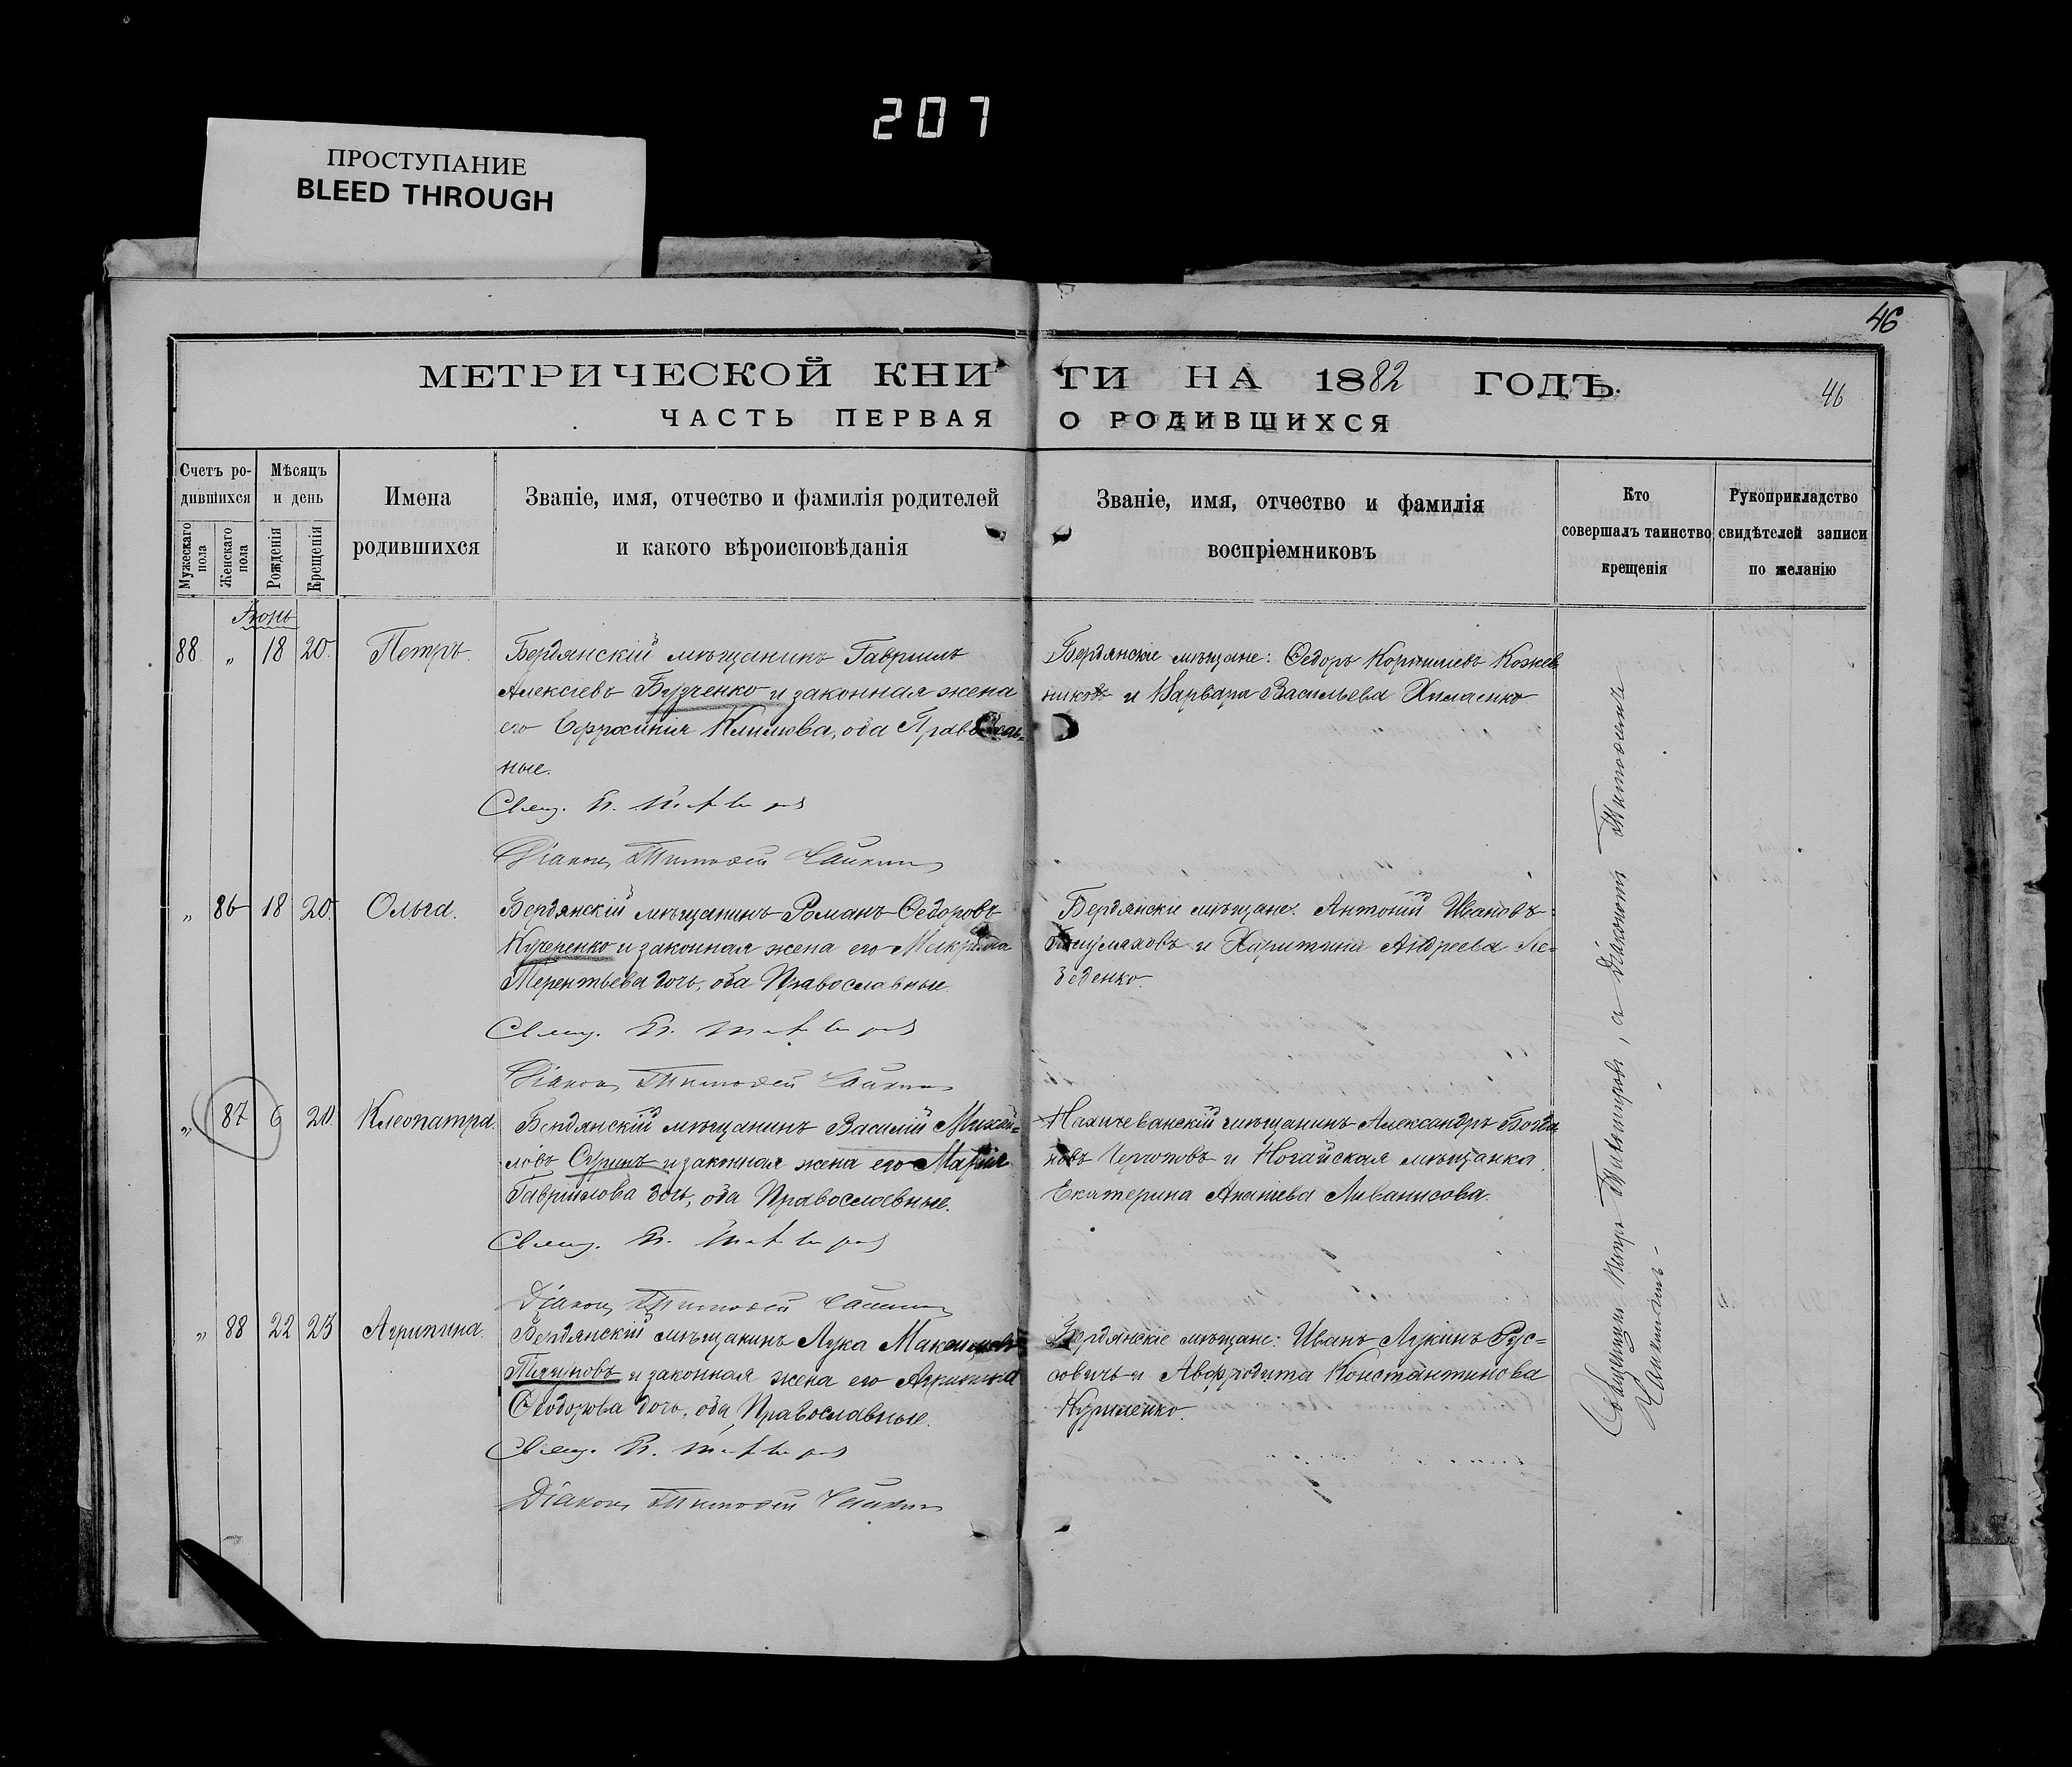 207
ПРОСТУПАНИЕ
BLEED THROUGH
46
МЕТРИЧЕСКОЙ КНИГИ НА 1882 ГОДЪ.
46
ЧАСТЬ ПЕРВАЯ О РОДИВШИХСЯ
Счетъ ро-
дившихся
Мужескаго пола
Женскаго пола
Мѣсяцъ
и день
Рожденія
Крещенія
Имена
родившихся
Званіе, имя, отчество и фамилія родителей
и какого вѣроисповѣданія
Званіе, имя, отчество и фамилія
воспріемниковъ
Кто
совершалъ таинство
крещенія
Рукоприкладство
свидѣтелей записи
по желанію
Іюнь
88 „ 18 20. Петръ.
Бердянскій мѣщанинъ Гавріилъ
Алексіевъ и законная жена
его Ефросинія Климова, оба Православ-
ные.
Свящ. П.
Діаконъ Тимофей
Бердянскіе мѣщане: Ѳедоръ Корниліевъ Кожев
никовъ и Варвара Васильева
„ 86 18 20. Ольга.
Бердянскій мѣщанинъ Романъ Ѳедоровъ
Кучеренко и законная жена его Макрина
Терентьева дочь, оба Православные.
Свящ. П.
Діаконъ Тимофей
Бердянскіе мѣщане: Антоній Ивановъ
и Харитина Андреева Ле-
беденко.
„ 87 6 20 Клеопатра.
Бердянскій мѣщанинъ Василій Михай-
ловъ Суринъ и законная жена его Марія
Гавріилова дочь, оба Православные.
Свящ. П.
Діаконъ Тимофей
Нахичеванскій мѣщанинъ Александръ Богда
новъ и Ногайская мѣщанка
Екатерина Ананіева Ливанисова.
„ 88 22 25 Агрипина.
Бердянскій мѣщанинъ Лука Максимовъ
и законная жена его Агрипина
Ѳеодорова дочь, оба Православные.
Свящ. П.
Діаконъ Тимофей
Бердянскіе мѣщане: Иванъ Лукинъ Рус-
совичъ и Авфродита Константинова
Куриленко.
Священникъ Петръ , а діаконъ Тимофей